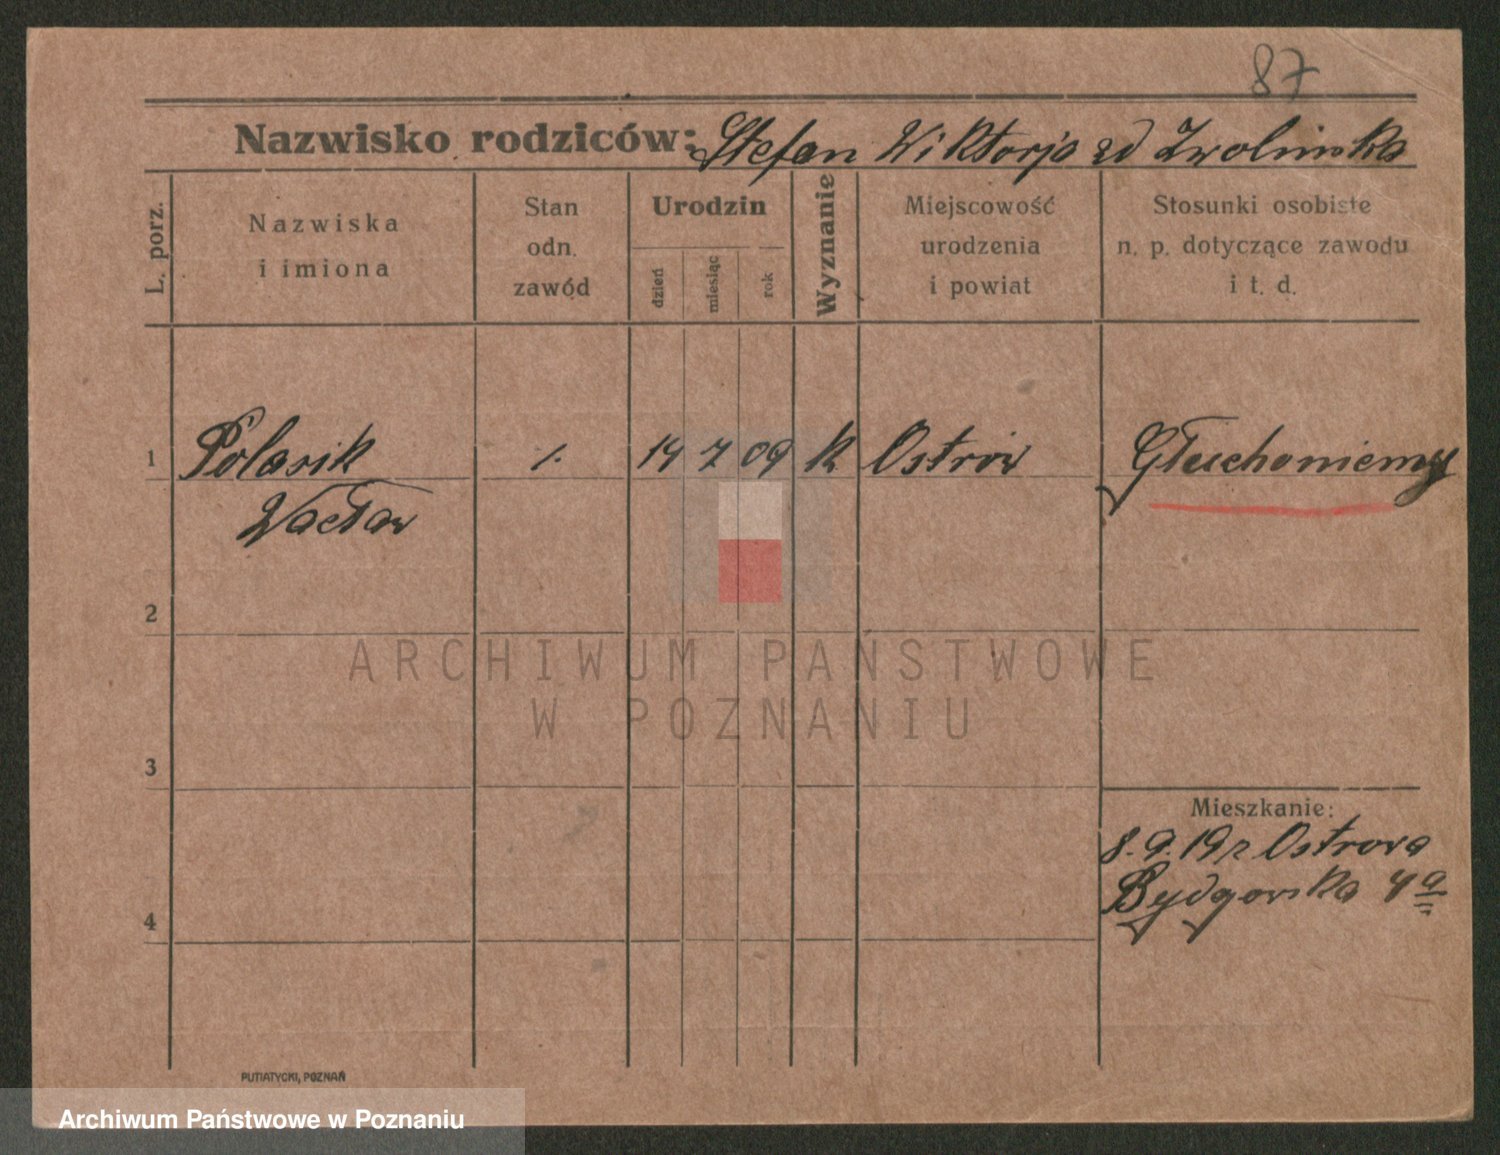 87
Nazwisko rodziców: Stefan Wiktorja zd Zwolinska
L. porz.
Nazwiska
i imiona
Stan
odn.
zawód
Urodzin
dzień
miesiąc
rok
Wyznanie
Miejscowość
urodzenia
i powiat
Stosunki osobiste
n. p. dotyczące zawodu
i t. d.
1 Polasik 1. 14 7 09 k Ostrów Głuchoniemy
Wacław
2
ARCHIWUM PAŃSTWOWE
W POZNANIU
3
Mieszkanie:
8.9.19 z Ostrowa
Bydgorska 4a
4
PUTIATYCKI, POZNAŃ
Archiwum Państwowe w Poznaniu